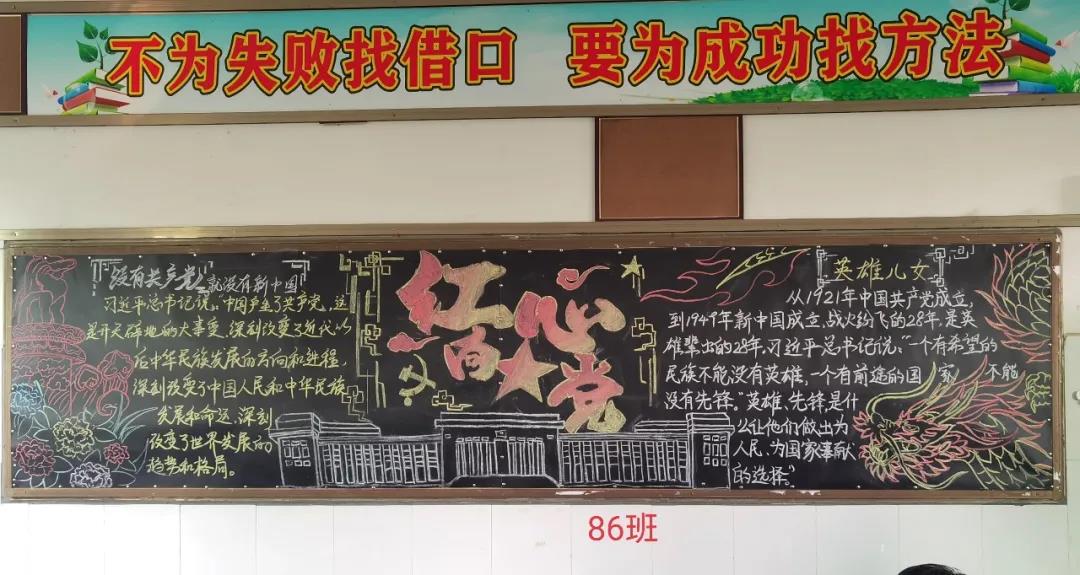 不为失败找借口 要为成功找方法
没有共产党 就没有新中国
习近平总书记说:"中国产生了共产党,这
是开天辟地的大事变,深刻改变了近代以
后中华民族发展的方向和进程
深刻改变了中国人民和中华民族
发展和命运,深刻
改变了世界发展的
趋势和格局。
红心
向党
英雄儿女
从1921年中国共产党成立,
到1949年新中国成立,战火纷飞的28年,是英
雄辈出的28年,习近平总书记说,"一个有希望的
民族不能没有英雄,一个有前途的国家不能
没有先锋。"英雄、先锋,是什
么让他们做出为
人民、为国家奉献
的选择。"
86班